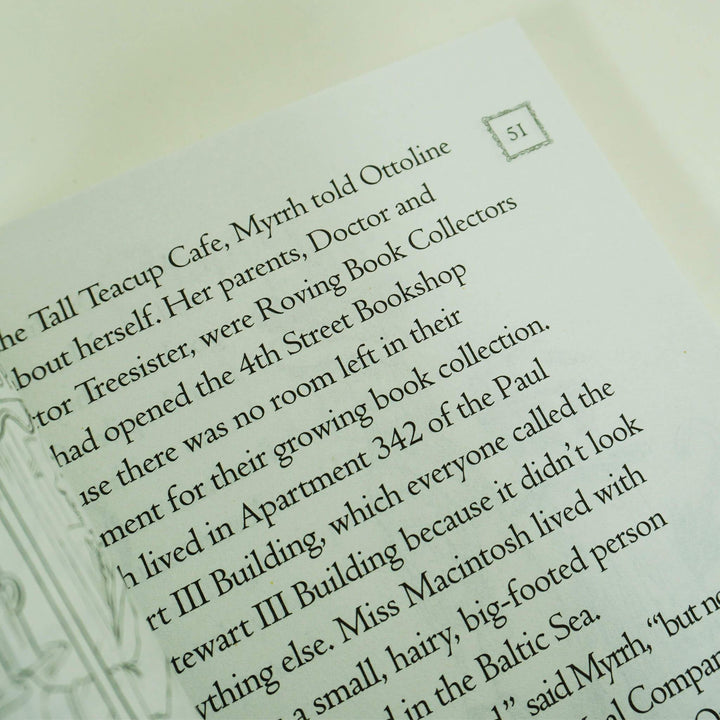 51
he Tall Teacup Cafe, Myrrh told Ottoline
bout herself. Her parents, Doctor and
tor Treesister, were Roving Book Collectors
had opened the 4th Street Bookshop
use there was no room left in their
ment for their growing book collection.
h lived in Apartment 342 of the Paul
rt III Building, which everyone called the
tewart III Building because it didn't look
ything else. Miss Macintosh lived with
a small, hairy, big-footed person
d in the Baltic Sea.
d," said Myrrh, "but no
al Compan